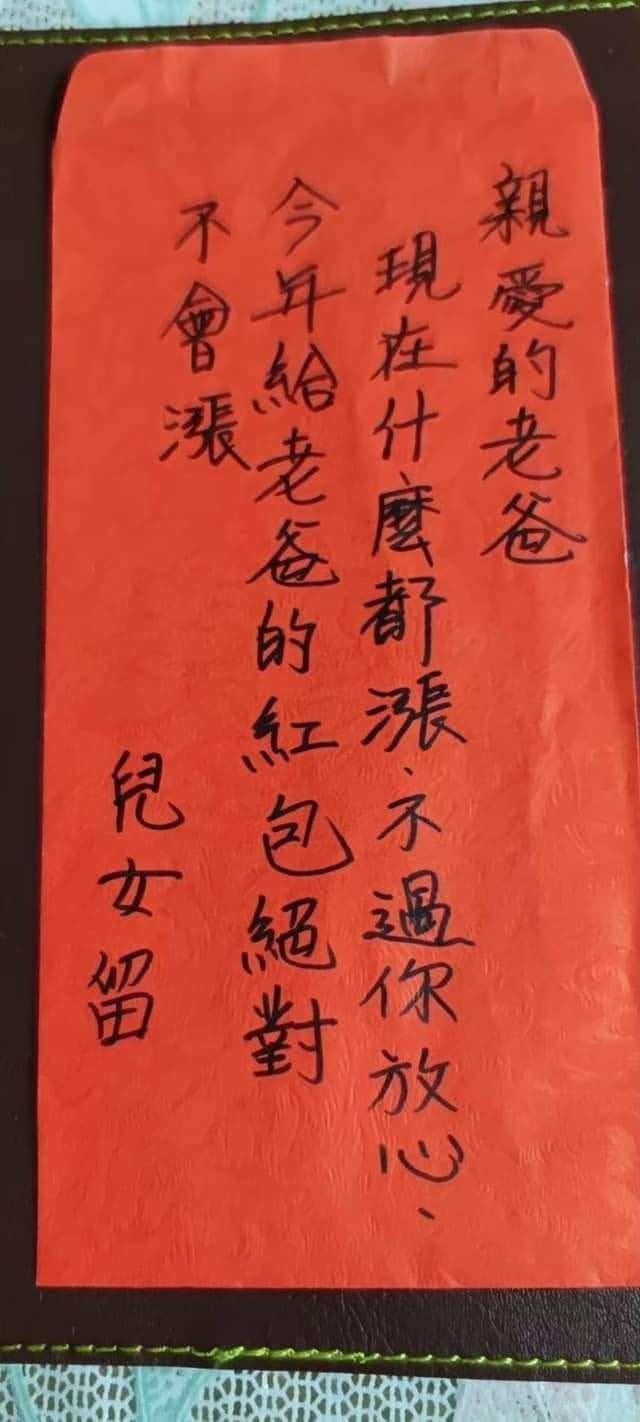 親愛的老爸
現在什麼都漲、不過你放心、
今年給老爸的紅包絕對
不會漲
兒女留